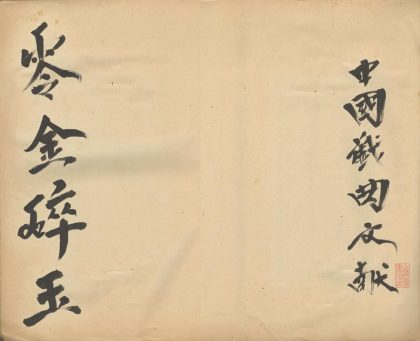 中國戲曲文献
零金碎玉